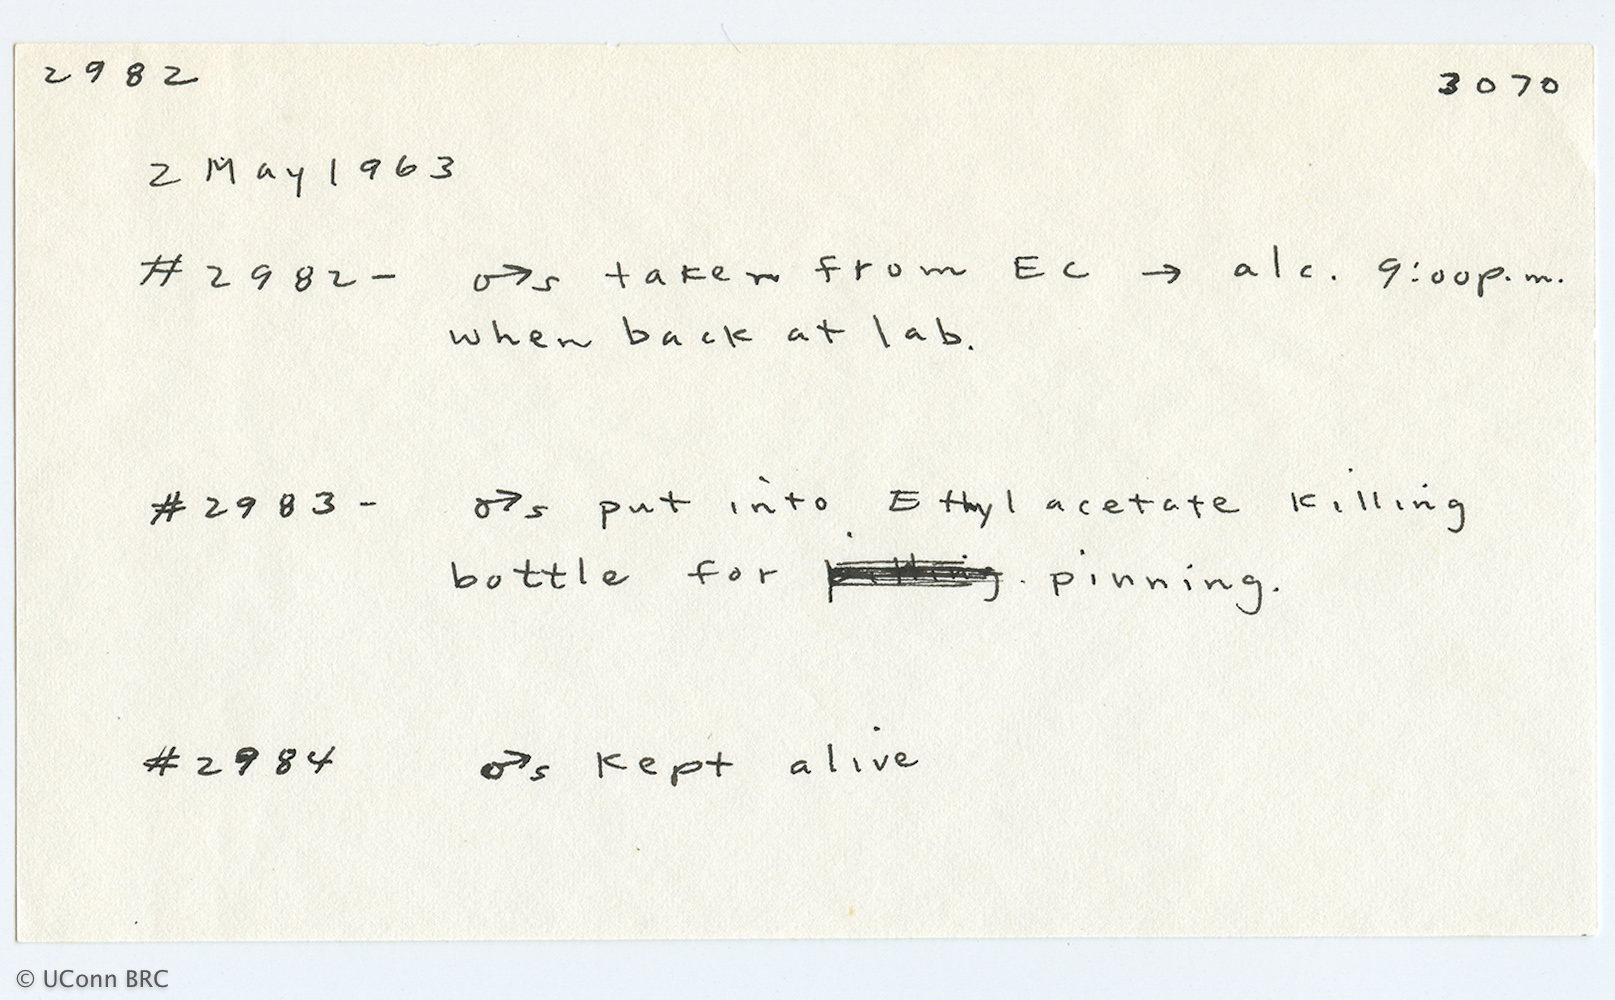 2982 3070
2 May 1963
#2982- ♂s taken from EC → alc. 9:00p.m.
when back at lab.
#2983- ♂s put into Ethyl acetate killing
bottle for pinning.
#2984 ♂s kept alive
© UConn BRC